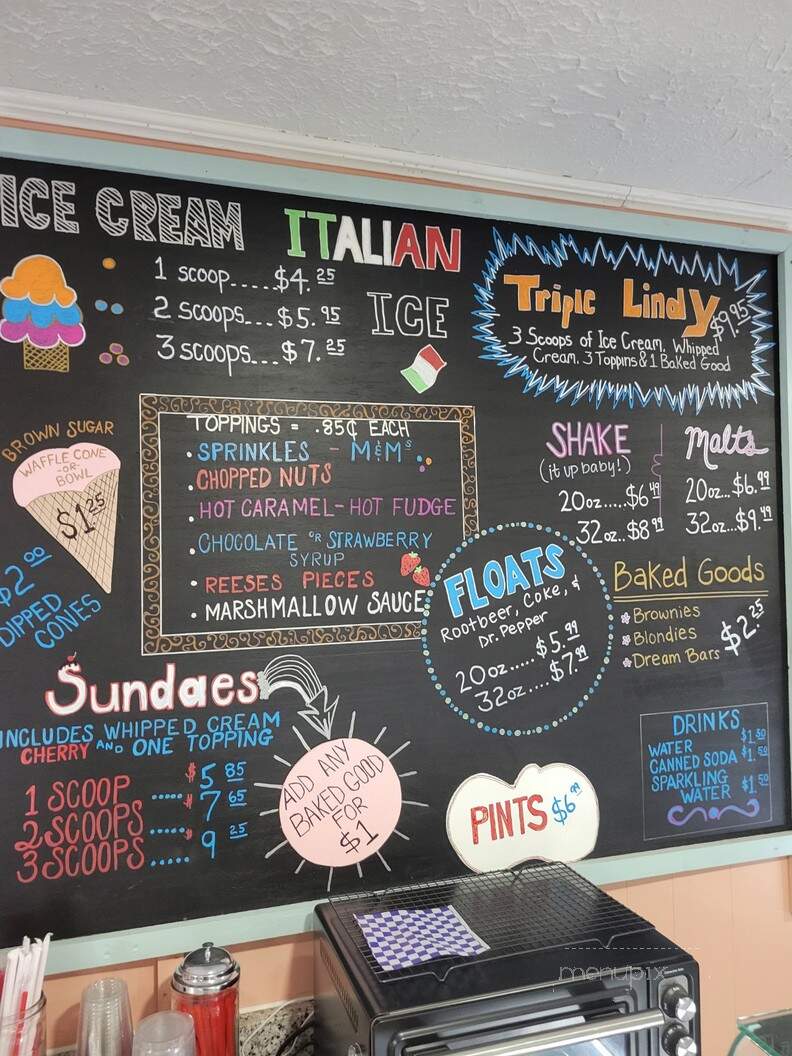 ICE CREAM
ITALIAN
ICE
1 scoop.....$4.25
2 scoops...$5.95
3 scoops...$7.25
Triple Lindy $9.95
3 Scoops of Ice Cream, Whipped
Cream, 3 Toppins & 1 Baked Good
BROWN SUGAR
WAFFLE CONE
-OR-
BOWL
$1.25
$2.00
DIPPED
CONES
TOPPINGS = .85¢ EACH
• SPRINKLES - M&M's
• CHOPPED NUTS
• HOT CARAMEL-HOT FUDGE
• CHOCOLATE OR STRAWBERRY
SYRUP
• REESES PIECES
• MARSHMALLOW SAUCE
SHAKE
(it up baby!)
20oz.....$6.49
32oz..$8.99
Malts
20oz..$6.99
32oz...$9.49
FLOATS
Rootbeer, Coke, &
Dr. Pepper
20oz.....$5.99
32oz....$7.99
Baked Goods
Brownies
Blondies
Dream Bars
$2.25
Sundaes
INCLUDES WHIPPED CREAM
CHERRY AND ONE TOPPING
1 SCOOP ..... $5.85
2 SCOOPS ..... $7.65
3 SCOOPS ..... 9.25
ADD ANY
BAKED GOOD
FOR
$1
PINTS $6.99
DRINKS
WATER $1.50
CANNED SODA $1.50
SPARKLING
WATER $1.50
menupix